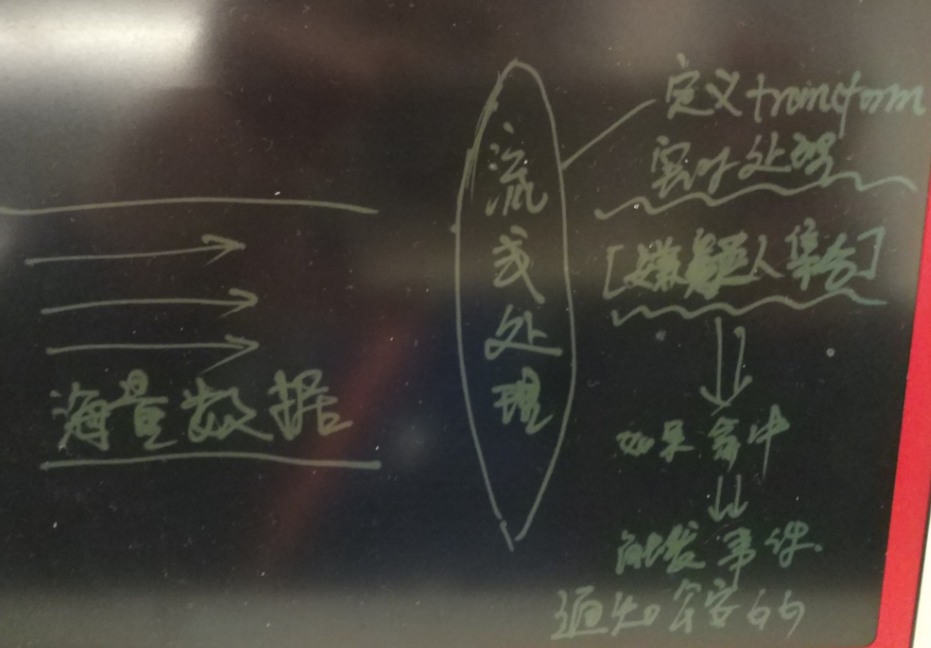 海量数据
流式处理
定义transform
实时处理
[嫌疑人集合]
如果命中
触发事件.
通知公安